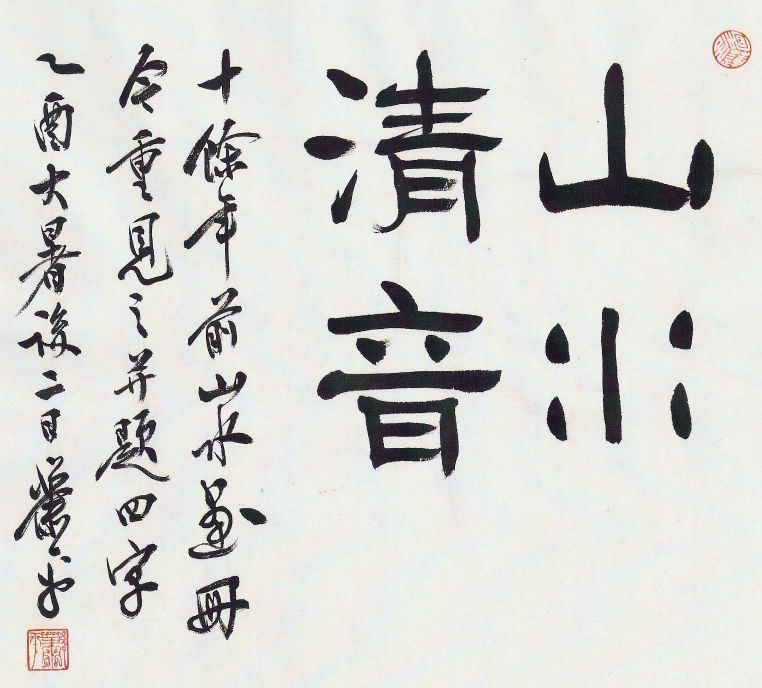 山水
清音
十餘年前山水畫冊
今重見之并題四字
乙酉大暑後二日